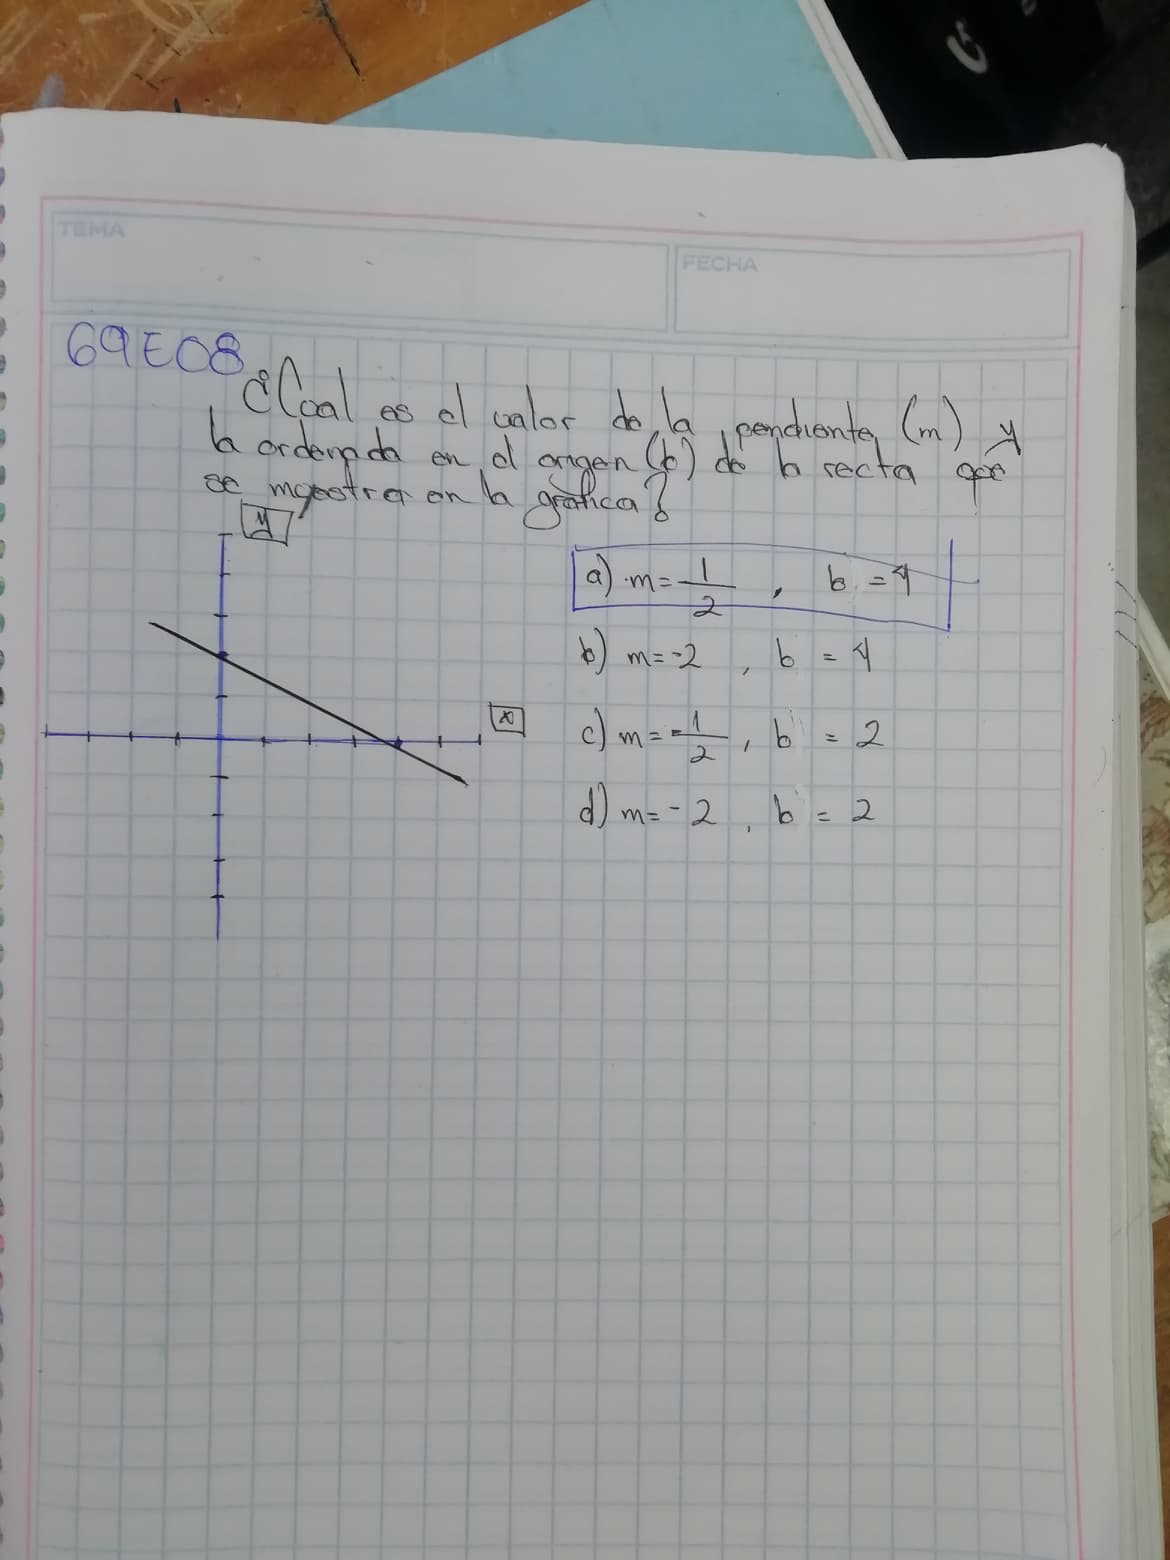 TEMA
FECHA
69E08
¿Cual es el valor de la pendiente (m) y
la ordenada en el origen (b) de la recta que
se muestra en la gráfica?
y
a) m = 1/2 , b = 4
b) m = -2 , b = 4
x
c) m = -1/2 , b = 2
d) m = -2 , b = 2